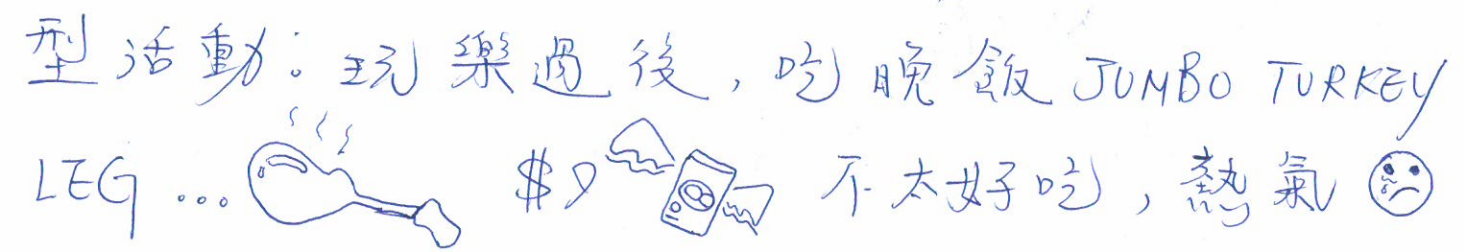 型活動：玩樂過後，吃晚飯 JUMBO TURKEY
LEG ... $9 不太好吃，熱氣